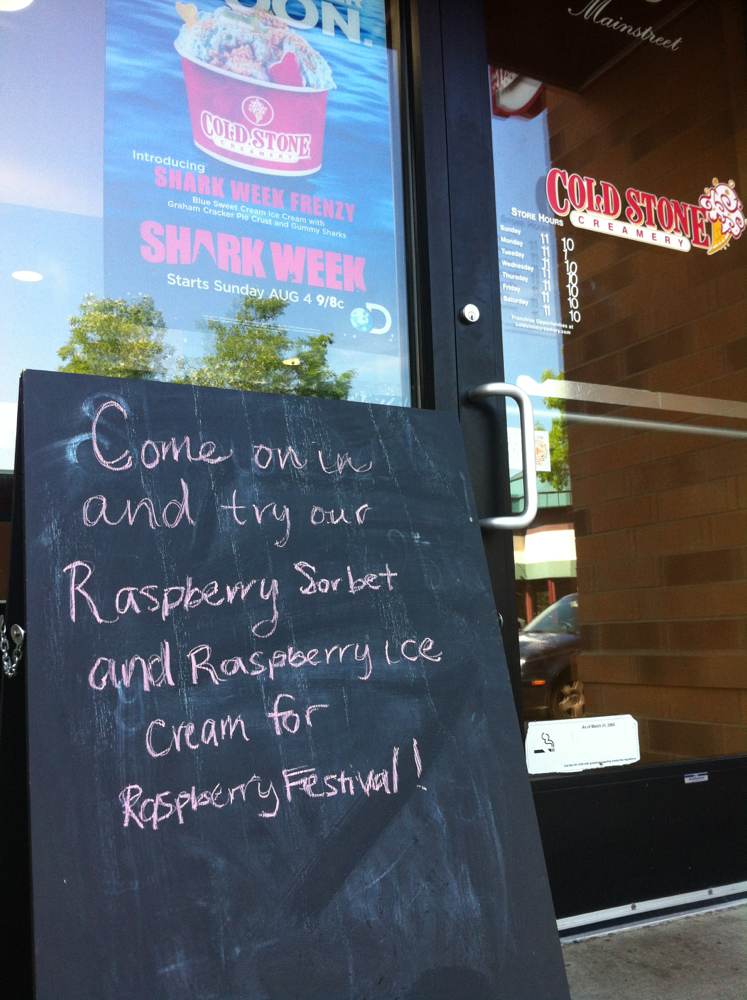 OON.
COLD STONE
CREAMERY
Introducing
SHARK WEEK FRENZY
Blue Sweet Cream Ice Cream with
Graham Cracker Pie Crust and Gummy Sharks
SHARK WEEK
Starts Sunday AUG 4 9/8c
D
Mainstreet
COLD STONE
CREAMERY
STORE HOURS
Sunday 11 10
Monday 11
Tuesday 11
Wednesday 11 10
Thursday 11 10
Friday 11 10
Saturday 11 10
Franchise Opportunities at
coldstonecreamery.com
Come on in
and try our
Raspberry Sorbet
and Raspberry ice
cream for
Raspberry Festival!